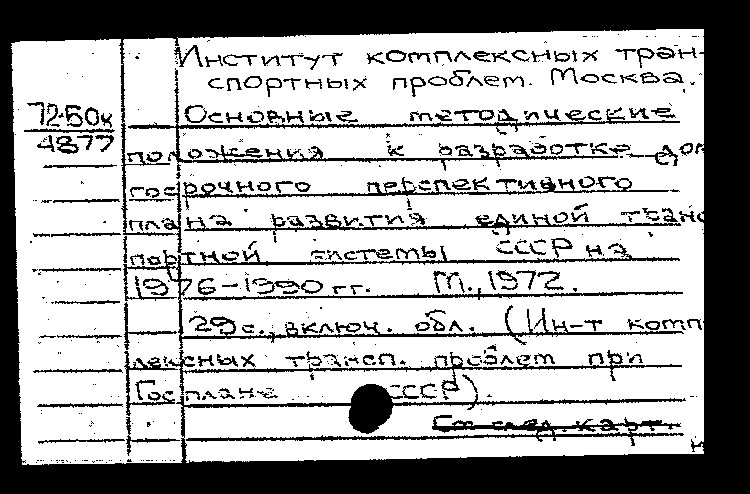 Институт комплексных тран-
спортных проблем. Москва.
72-50к
4877
Основные методические
положения к разработке дол
госрочного перспективного
плана развития единой транс
портной системы СССР на
1976-1990 гг. М., 1972.
29с., включ. обл. (Ин-т комп
лексных трансп. проблем при
Госплане СССР).
См след. карт.